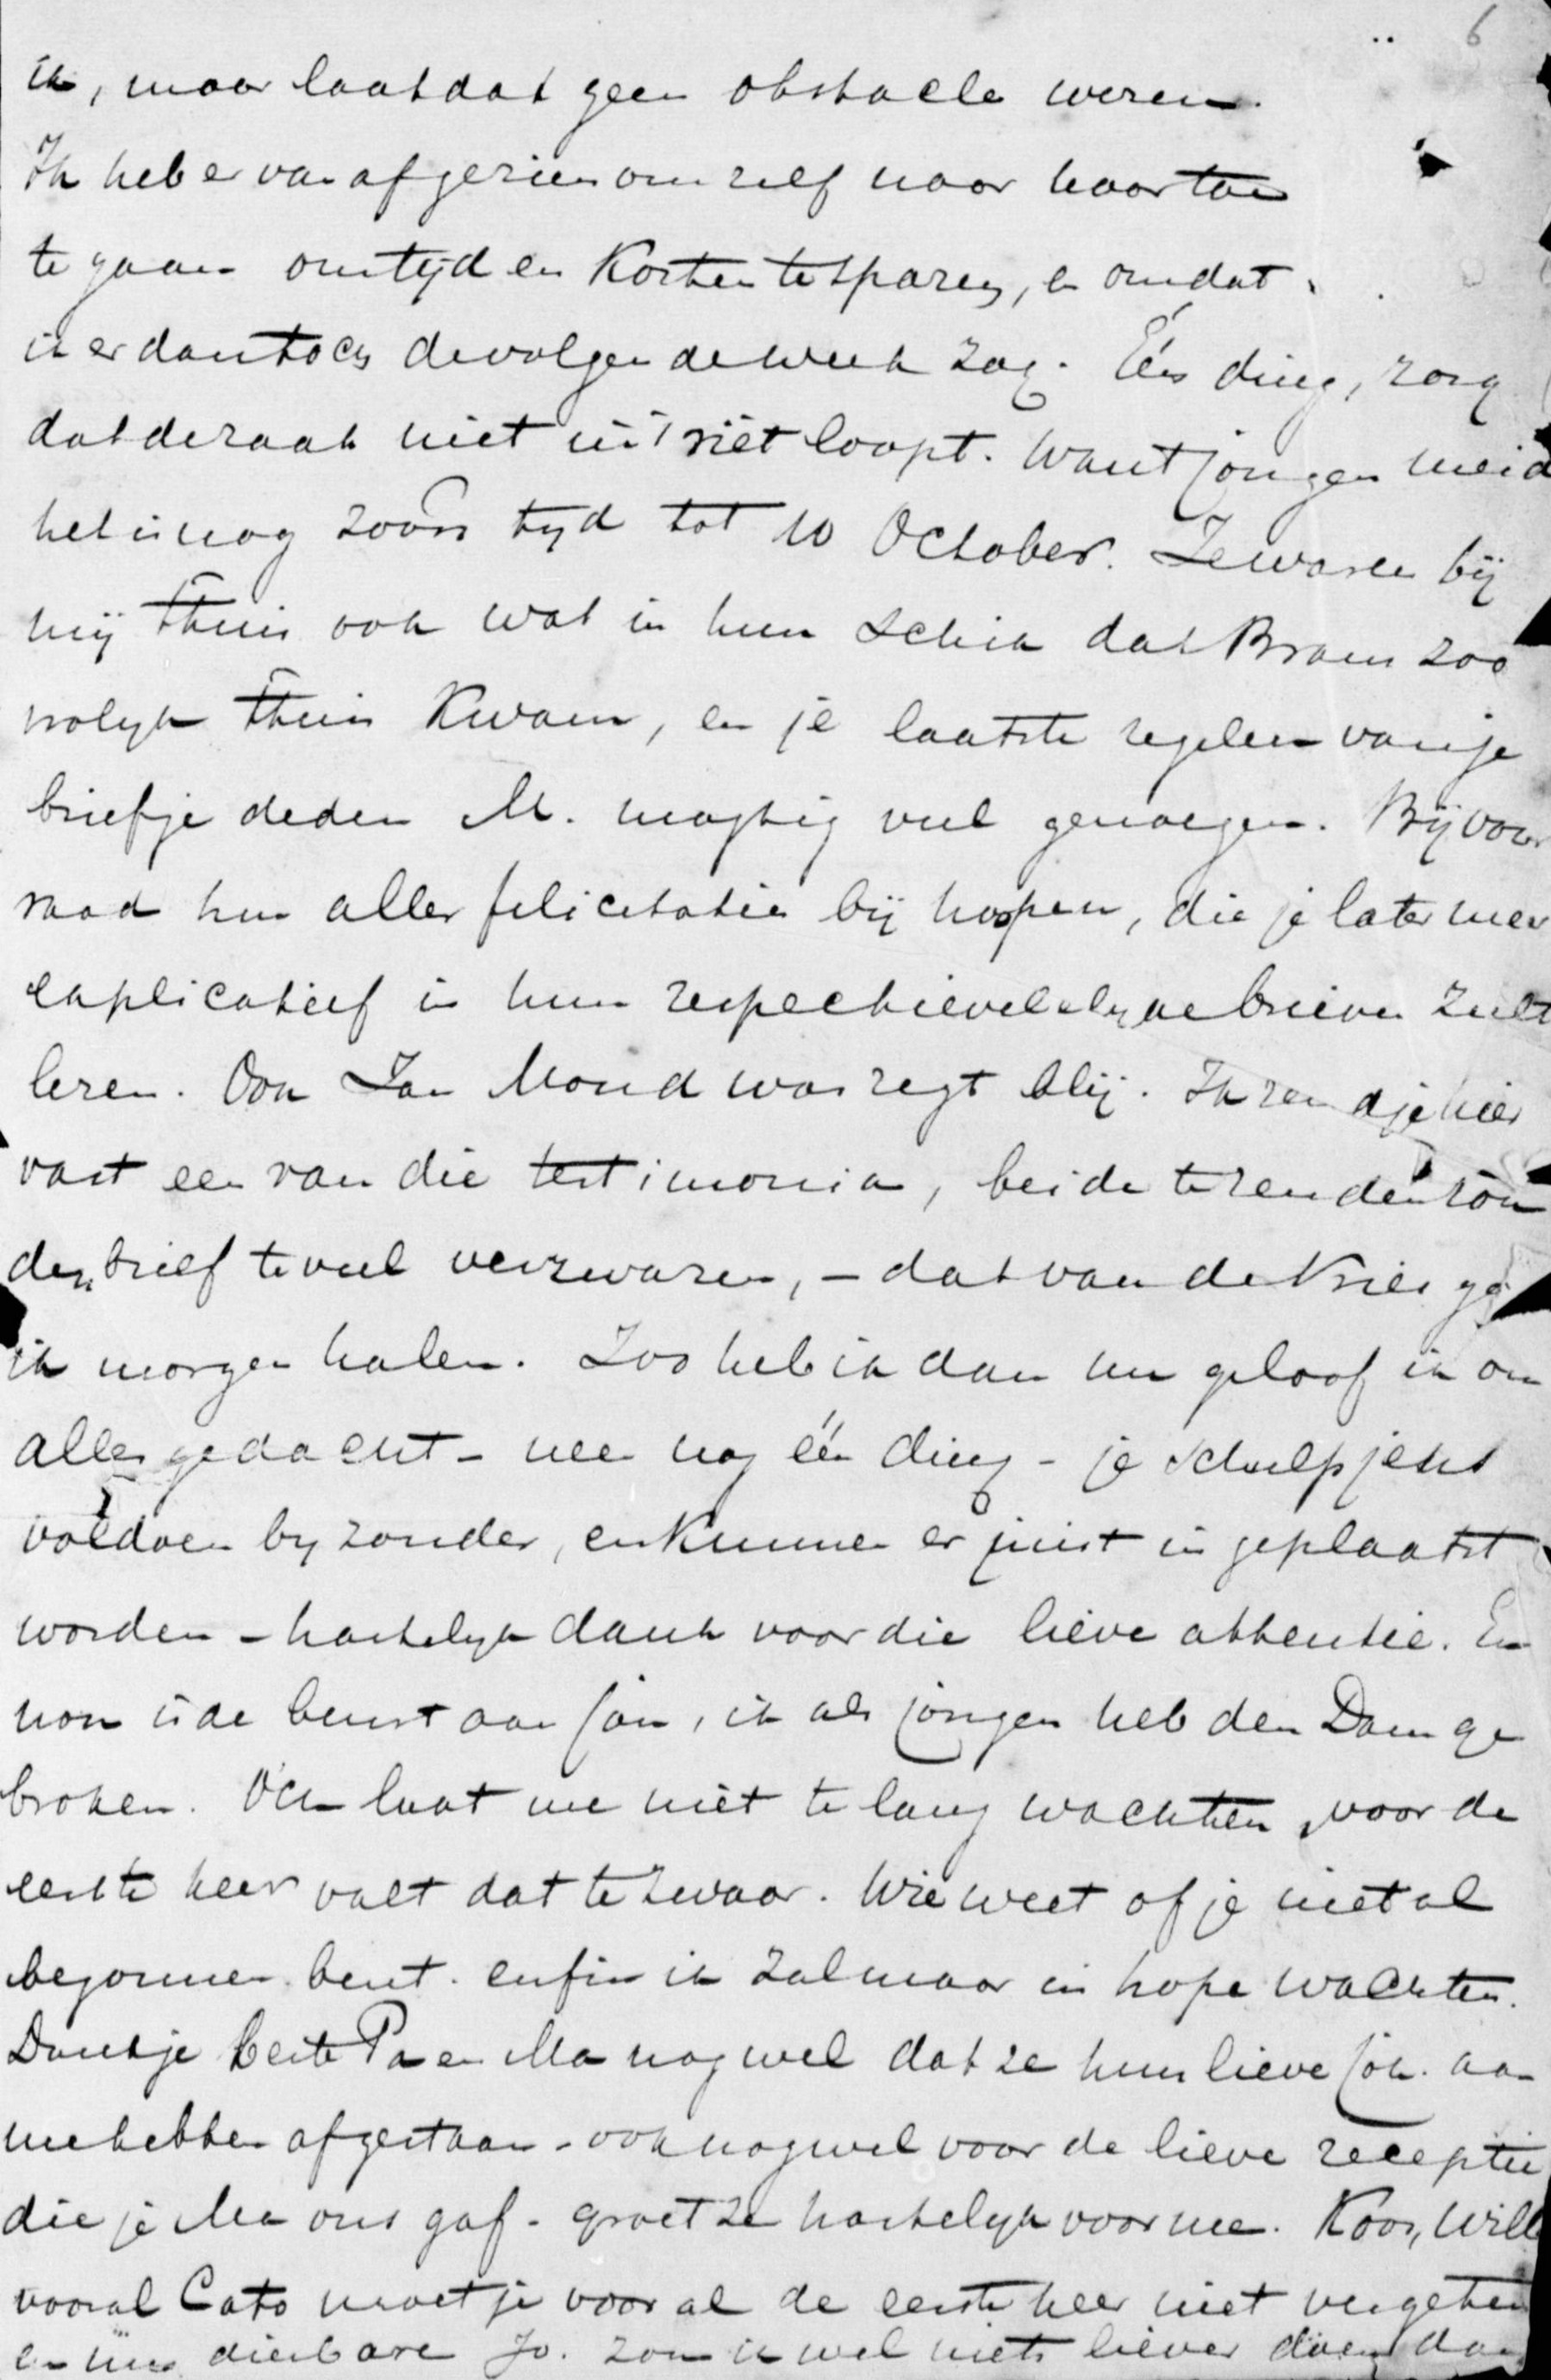 6
ik, maar laat dat geen obstacle wezen.
Ik heb er van afgezien om zelf naar haar toe
te gaan om tijd en kosten te sparen, en omdat
ik er dan toch de volgende week zag. Één ding, zorg
dat de zaak niet in 't riet loopt. Want jongen meid
het is nog zoo'n tyd tot 10 October. Ze waren bij
mij thuis ook wat in hun schik dat Bram zoo
vrolyk thuis kwam, en je laatste regelen van je
briefje deden M. magtig veel genoegen. Bij voor
raad hun aller felicitatie bij hoopen, die je later meer
explicatief in hun respectievelelyke brieven zult
lezen. Ook Jan Mond was regt blij. Ik zend je hier
vast een van die testimonia, beide te zenden zou
den brief te veel verzwaren, – dat van de Vries ga
ik morgen halen. Zoo heb ik dan nu geloof ik om
alles gedacht – nee nog één ding – je schulpjens
voldoen byzonder, en kunnen er juist in geplaatst
worden – hartelyk dank voor die lieve attentie. En
nou is de beurt aan jou, ik als jongen heb den Dam ge
broken. Och laat me niet te lang wachten, voor de
eerste keer valt dat te zwaar. Wie weet of je niet al
begonnen bent. enfin ik zal maar in hope wachten.
Dank je beste Pa en Ma nog wel dat ze hun lieve Joh. aan
me hebben afgestaan – ook nog wel voor de lieve receptie
die je Ma ons gaf – groet ze hartelyk voor me. Koos, Will
vooral Cato moet je vooral de eerste keer niet vergeten
en mijn dierbare Jo. zou ik wel niets liever doen dan